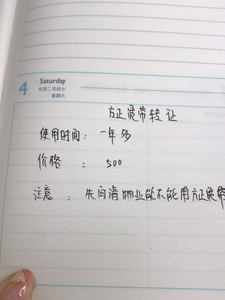 4
Saturday
农历二月初七
星期六
方正宽带转让
使用时间：一年多
价格：500
注意：先问清物业能不能用方正宽带